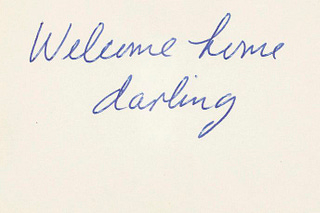 Welcome home
darling